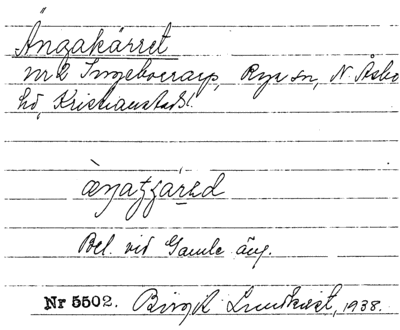 Ängakärret
nr 2 Ingeborrarp, Rya sn, N Åsbo
hd, Kristianstads l.
Bel. vid Gamle äng.
Nr 5502. Birgit Lundkvist, 1938.